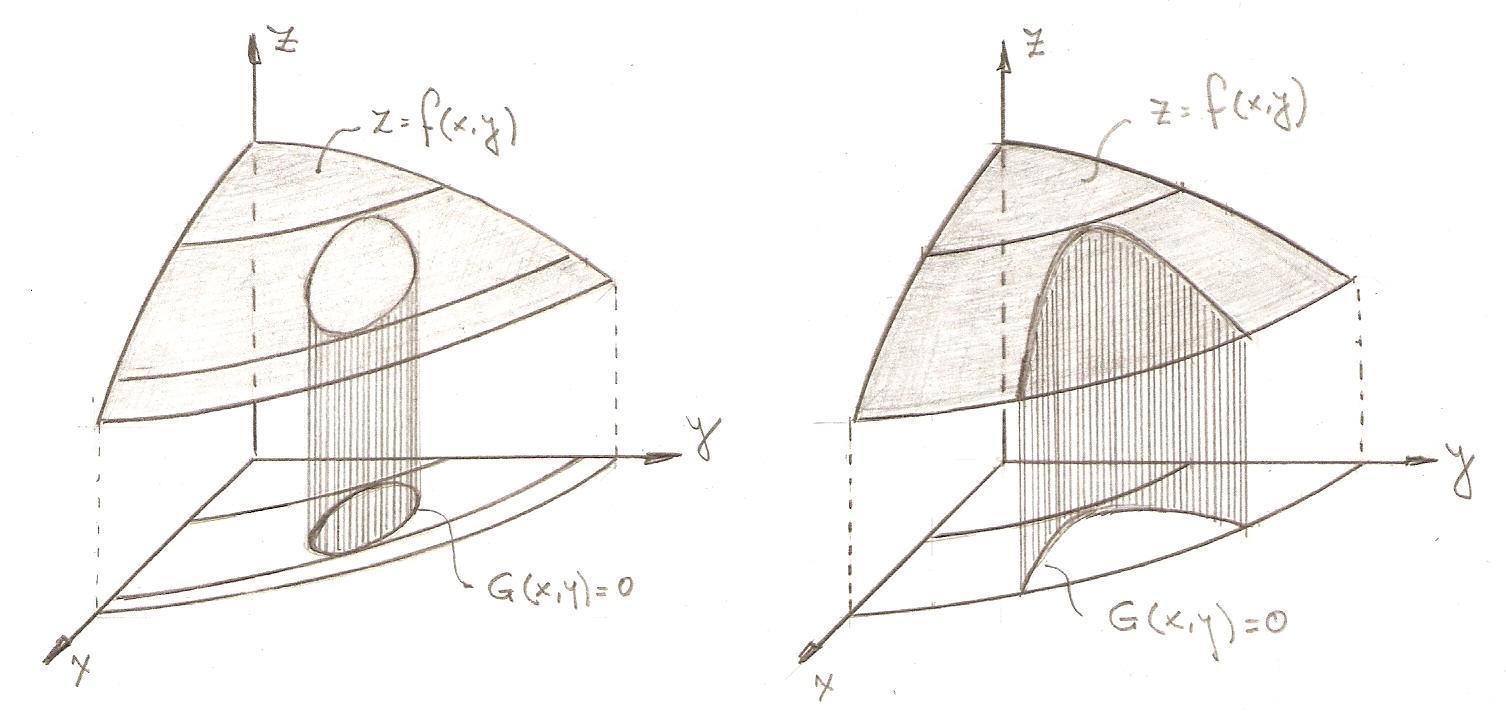 z
z=f(x,y)
y
G(x,y)=0
x
z
z=f(x,y)
y
G(x,y)=0
x